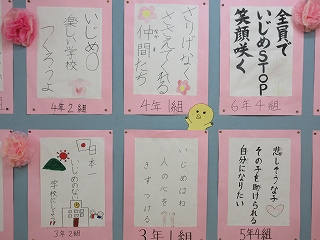 いじめ〇
楽しい学校
つくろうよ
4年2組
さりげなく
ささえてくれる
仲間たち
4年1組
全員で
いじめSTOP
笑顔咲く
6年4組
日本一
いじめのない
学校にしよう
3年2組
いじめはね
人の心を
きずつける
3年1組
悲しそうな子
その子を助けられる
自分になりたい
5年4組